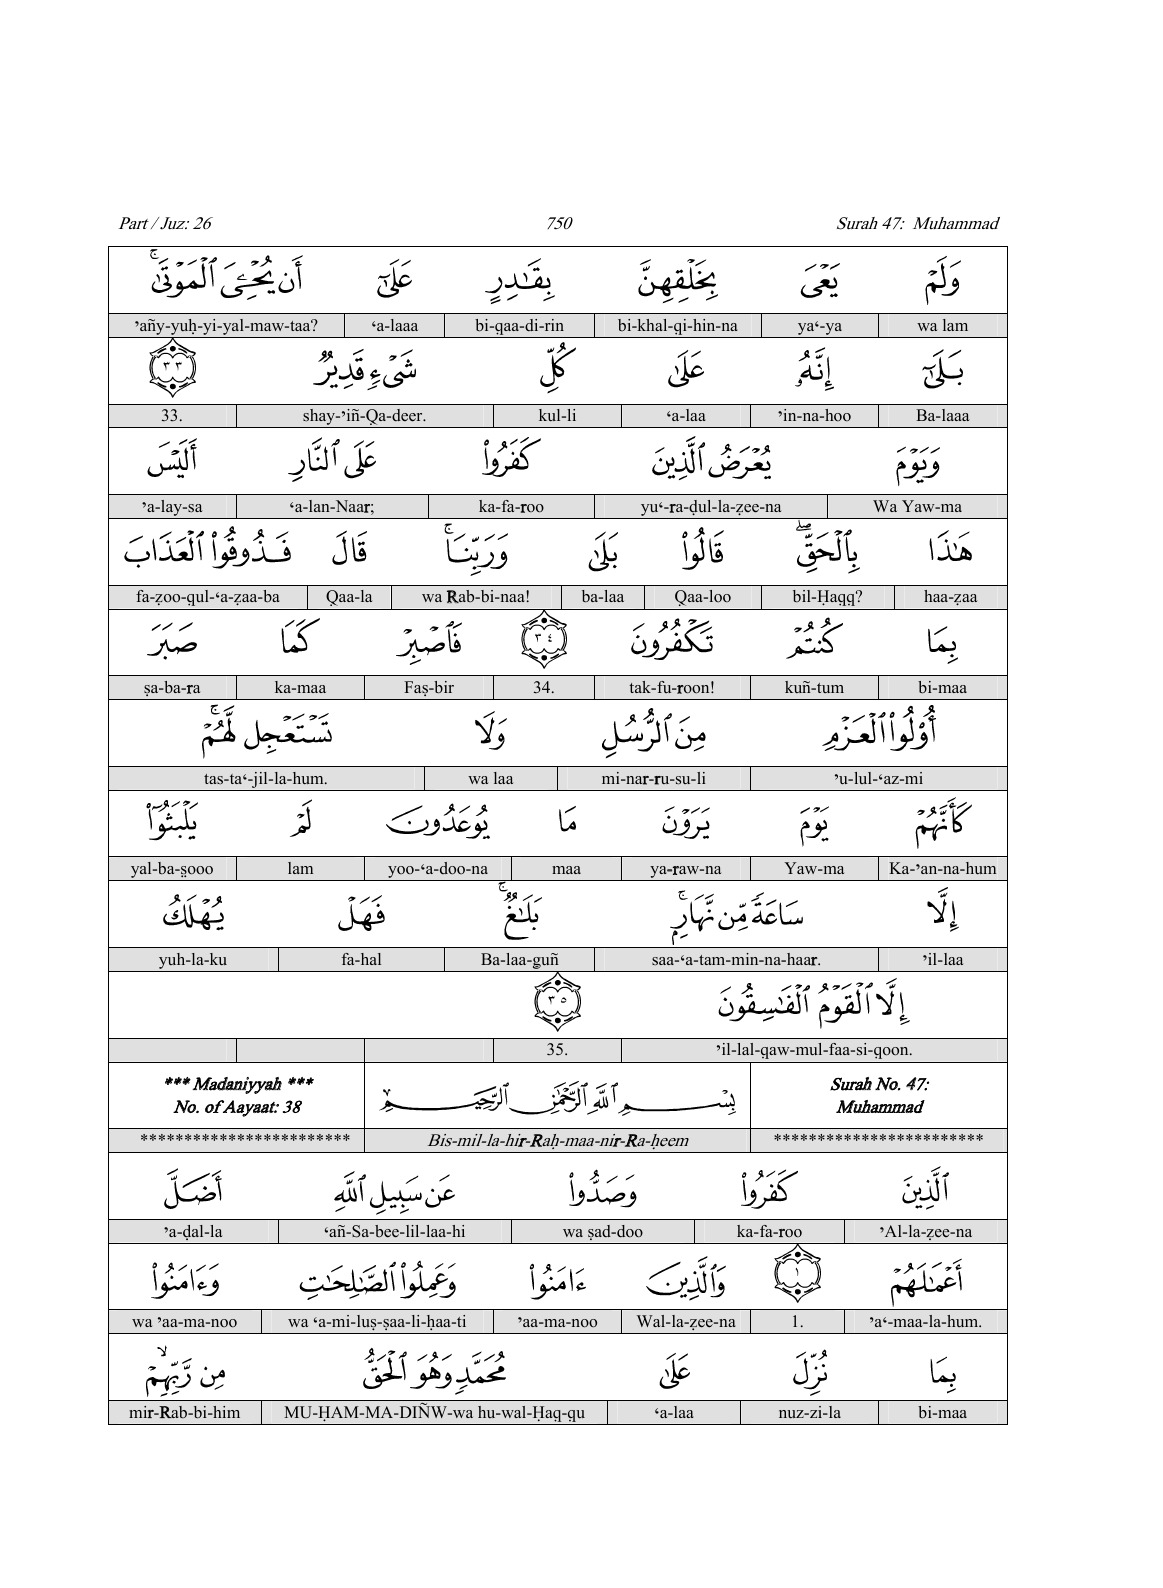 Part / Juz: 26 750 Surah 47: Muhammad
وَلَمْ يَعْىَ بِخَلْقِهِنَّ بِقَٰدِرٍ عَلَىٰٓ أَن يُحْـِۧىَ ٱلْمَوْتَىٰ ۚ
wa lam ya‘-ya bi-khal-qi-hin-na bi-qaa-di-rin ‘a-laaa ’añy-yuḥ-yi-yal-maw-taa?
بَلَىٰٓ إِنَّهُۥ عَلَىٰ كُلِّ شَىْءٍ قَدِيرٌ ٣٣
Ba-laaa ’in-na-hoo ‘a-laa kul-li shay-’iñ-Qa-deer. 33.
وَيَوْمَ يُعْرَضُ ٱلَّذِينَ كَفَرُوا۟ عَلَى ٱلنَّارِ أَلَيْسَ
Wa Yaw-ma yu‘-ra-ḍul-la-ẓee-na ka-fa-roo ‘a-lan-Naar; ’a-lay-sa
هَٰذَا بِٱلْحَقِّ ۖ قَالُوا۟ بَلَىٰ وَرَبِّنَا ۚ قَالَ فَذُوقُوا۟ ٱلْعَذَابَ
haa-ẓaa bil-Ḥaqq? Qaa-loo ba-laa wa Rab-bi-naa! Qaa-la fa-ẓoo-qul-‘a-ẓaa-ba
بِمَا كُنتُمْ تَكْفُرُونَ ٣٤ فَٱصْبِرْ كَمَا صَبَرَ
bi-maa kuñ-tum tak-fu-roon! 34. Faṣ-bir ka-maa ṣa-ba-ra
أُو۟لُوا۟ ٱلْعَزْمِ مِنَ ٱلرُّسُلِ وَلَا تَسْتَعْجِل لَّهُمْ ۚ
’u-lul-‘az-mi mi-nar-ru-su-li wa laa tas-ta‘-jil-la-hum.
كَأَنَّهُمْ يَوْمَ يَرَوْنَ مَا يُوعَدُونَ لَمْ يَلْبَثُوٓا۟
Ka-’an-na-hum Yaw-ma ya-raw-na maa yoo-‘a-doo-na lam yal-ba-s̱ooo
إِلَّا سَاعَةً مِّن نَّهَارٍۭ ۚ بَلَٰغٌ ۚ فَهَلْ يُهْلَكُ
’il-laa saa-‘a-tam-min-na-haar. Ba-laa-guñ fa-hal yuh-la-ku
إِلَّا ٱلْقَوْمُ ٱلْفَٰسِقُونَ ٣٥
’il-lal-qaw-mul-faa-si-qoon. 35.
*** Madaniyyah *** بِسْمِ ٱللَّهِ ٱلرَّحْمَٰنِ ٱلرَّحِيمِ Surah No. 47:
No. of Aayaat: 38 Muhammad
************************ Bis-mil-la-hir-Raḥ-maa-nir-Ra-ḥeem ************************
ٱلَّذِينَ كَفَرُوا۟ وَصَدُّوا۟ عَن سَبِيلِ ٱللَّهِ أَضَلَّ
’Al-la-ẓee-na ka-fa-roo wa ṣad-doo ‘añ-Sa-bee-lil-laa-hi ’a-ḍal-la
أَعْمَٰلَهُمْ ١ وَٱلَّذِينَ ءَامَنُوا۟ وَعَمِلُوا۟ ٱلصَّٰلِحَٰتِ وَءَامَنُوا۟
’a‘-maa-la-hum. 1. Wal-la-ẓee-na ’aa-ma-noo wa ‘a-mi-luṣ-ṣaa-li-ḥaa-ti wa ’aa-ma-noo
بِمَا نُزِّلَ عَلَىٰ مُحَمَّدٍ وَهُوَ ٱلْحَقُّ مِن رَّبِّهِمْ ۙ
bi-maa nuz-zi-la ‘a-laa MU-ḤAM-MA-DIÑW-wa hu-wal-Ḥaq-qu mir-Rab-bi-him